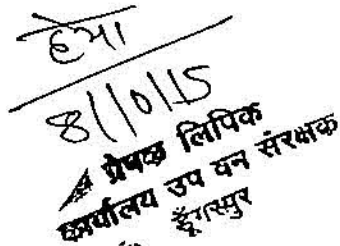 हेमा
8/10/15
प्रेषक लिपिक
कार्यालय उप वन संरक्षक
डूँगरपुर